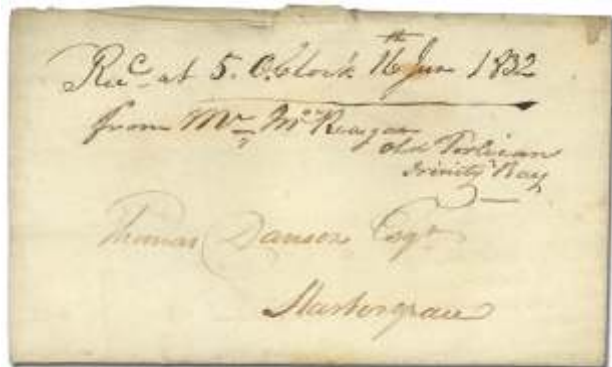 Rec.d at 5. O,Clock 16th Jan 1832
from Mr. McReagan
old Perlican
Trinity Bay
Thomas Danson Esqr
Harborgrace